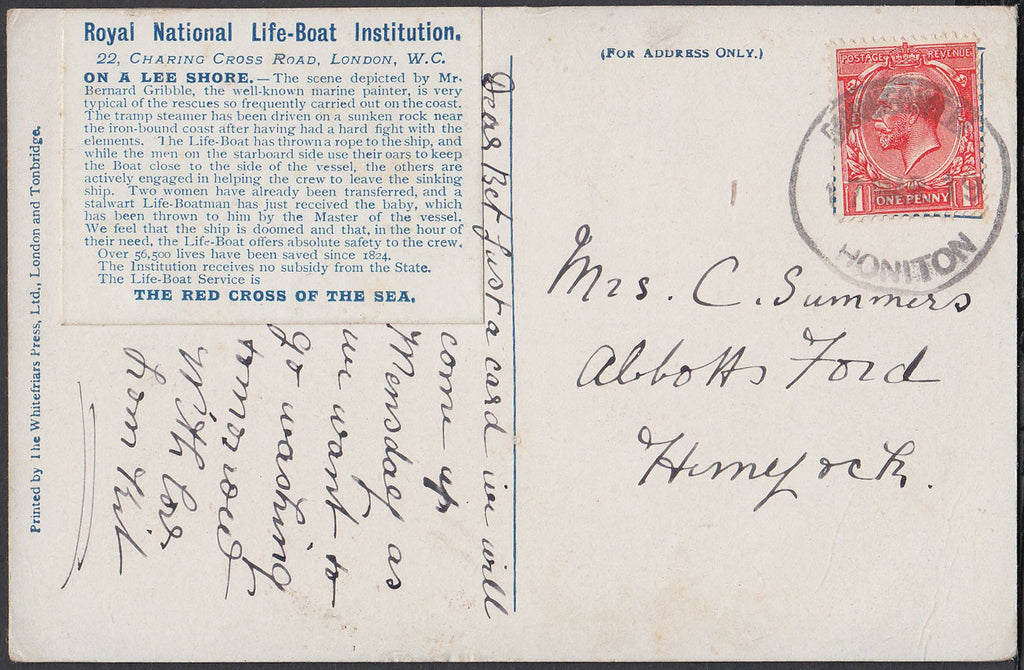 Royal National Life-Boat Institution.
22, CHARING CROSS ROAD, LONDON, W.C.
ON A LEE SHORE.—The scene depicted by Mr.
Bernard Gribble, the well-known marine painter, is very
typical of the rescues so frequently carried out on the coast.
The tramp steamer has been driven on a sunken rock near
the iron-bound coast after having had a hard fight with the
elements. The Life-Boat has thrown a rope to the ship, and
while the men on the starboard side use their oars to keep
the Boat close to the side of the vessel, the others are
actively engaged in helping the crew to leave the sinking
ship. Two women have already been transferred, and a
stalwart Life-Boatman has just received the baby, which
has been thrown to him by the Master of the vessel.
We feel that the ship is doomed and that, in the hour of
their need, the Life-Boat offers absolute safety to the crew.
Over 56,500 lives have been saved since 1824.
The Institution receives no subsidy from the State.
The Life-Boat Service is
THE RED CROSS OF THE SEA.
Printed by The Whitefriars Press, Ltd., London and Tonbridge.
Dear Bet Just a card we will
come up
Mensday as
we want to
go washing
tomorrow
With love
from
(FOR ADDRESS ONLY.)
POSTAGE REVENUE
1 1
ONE PENNY
HONITON
Mrs. C. Summers
Abbotts Ford
Hemyock.